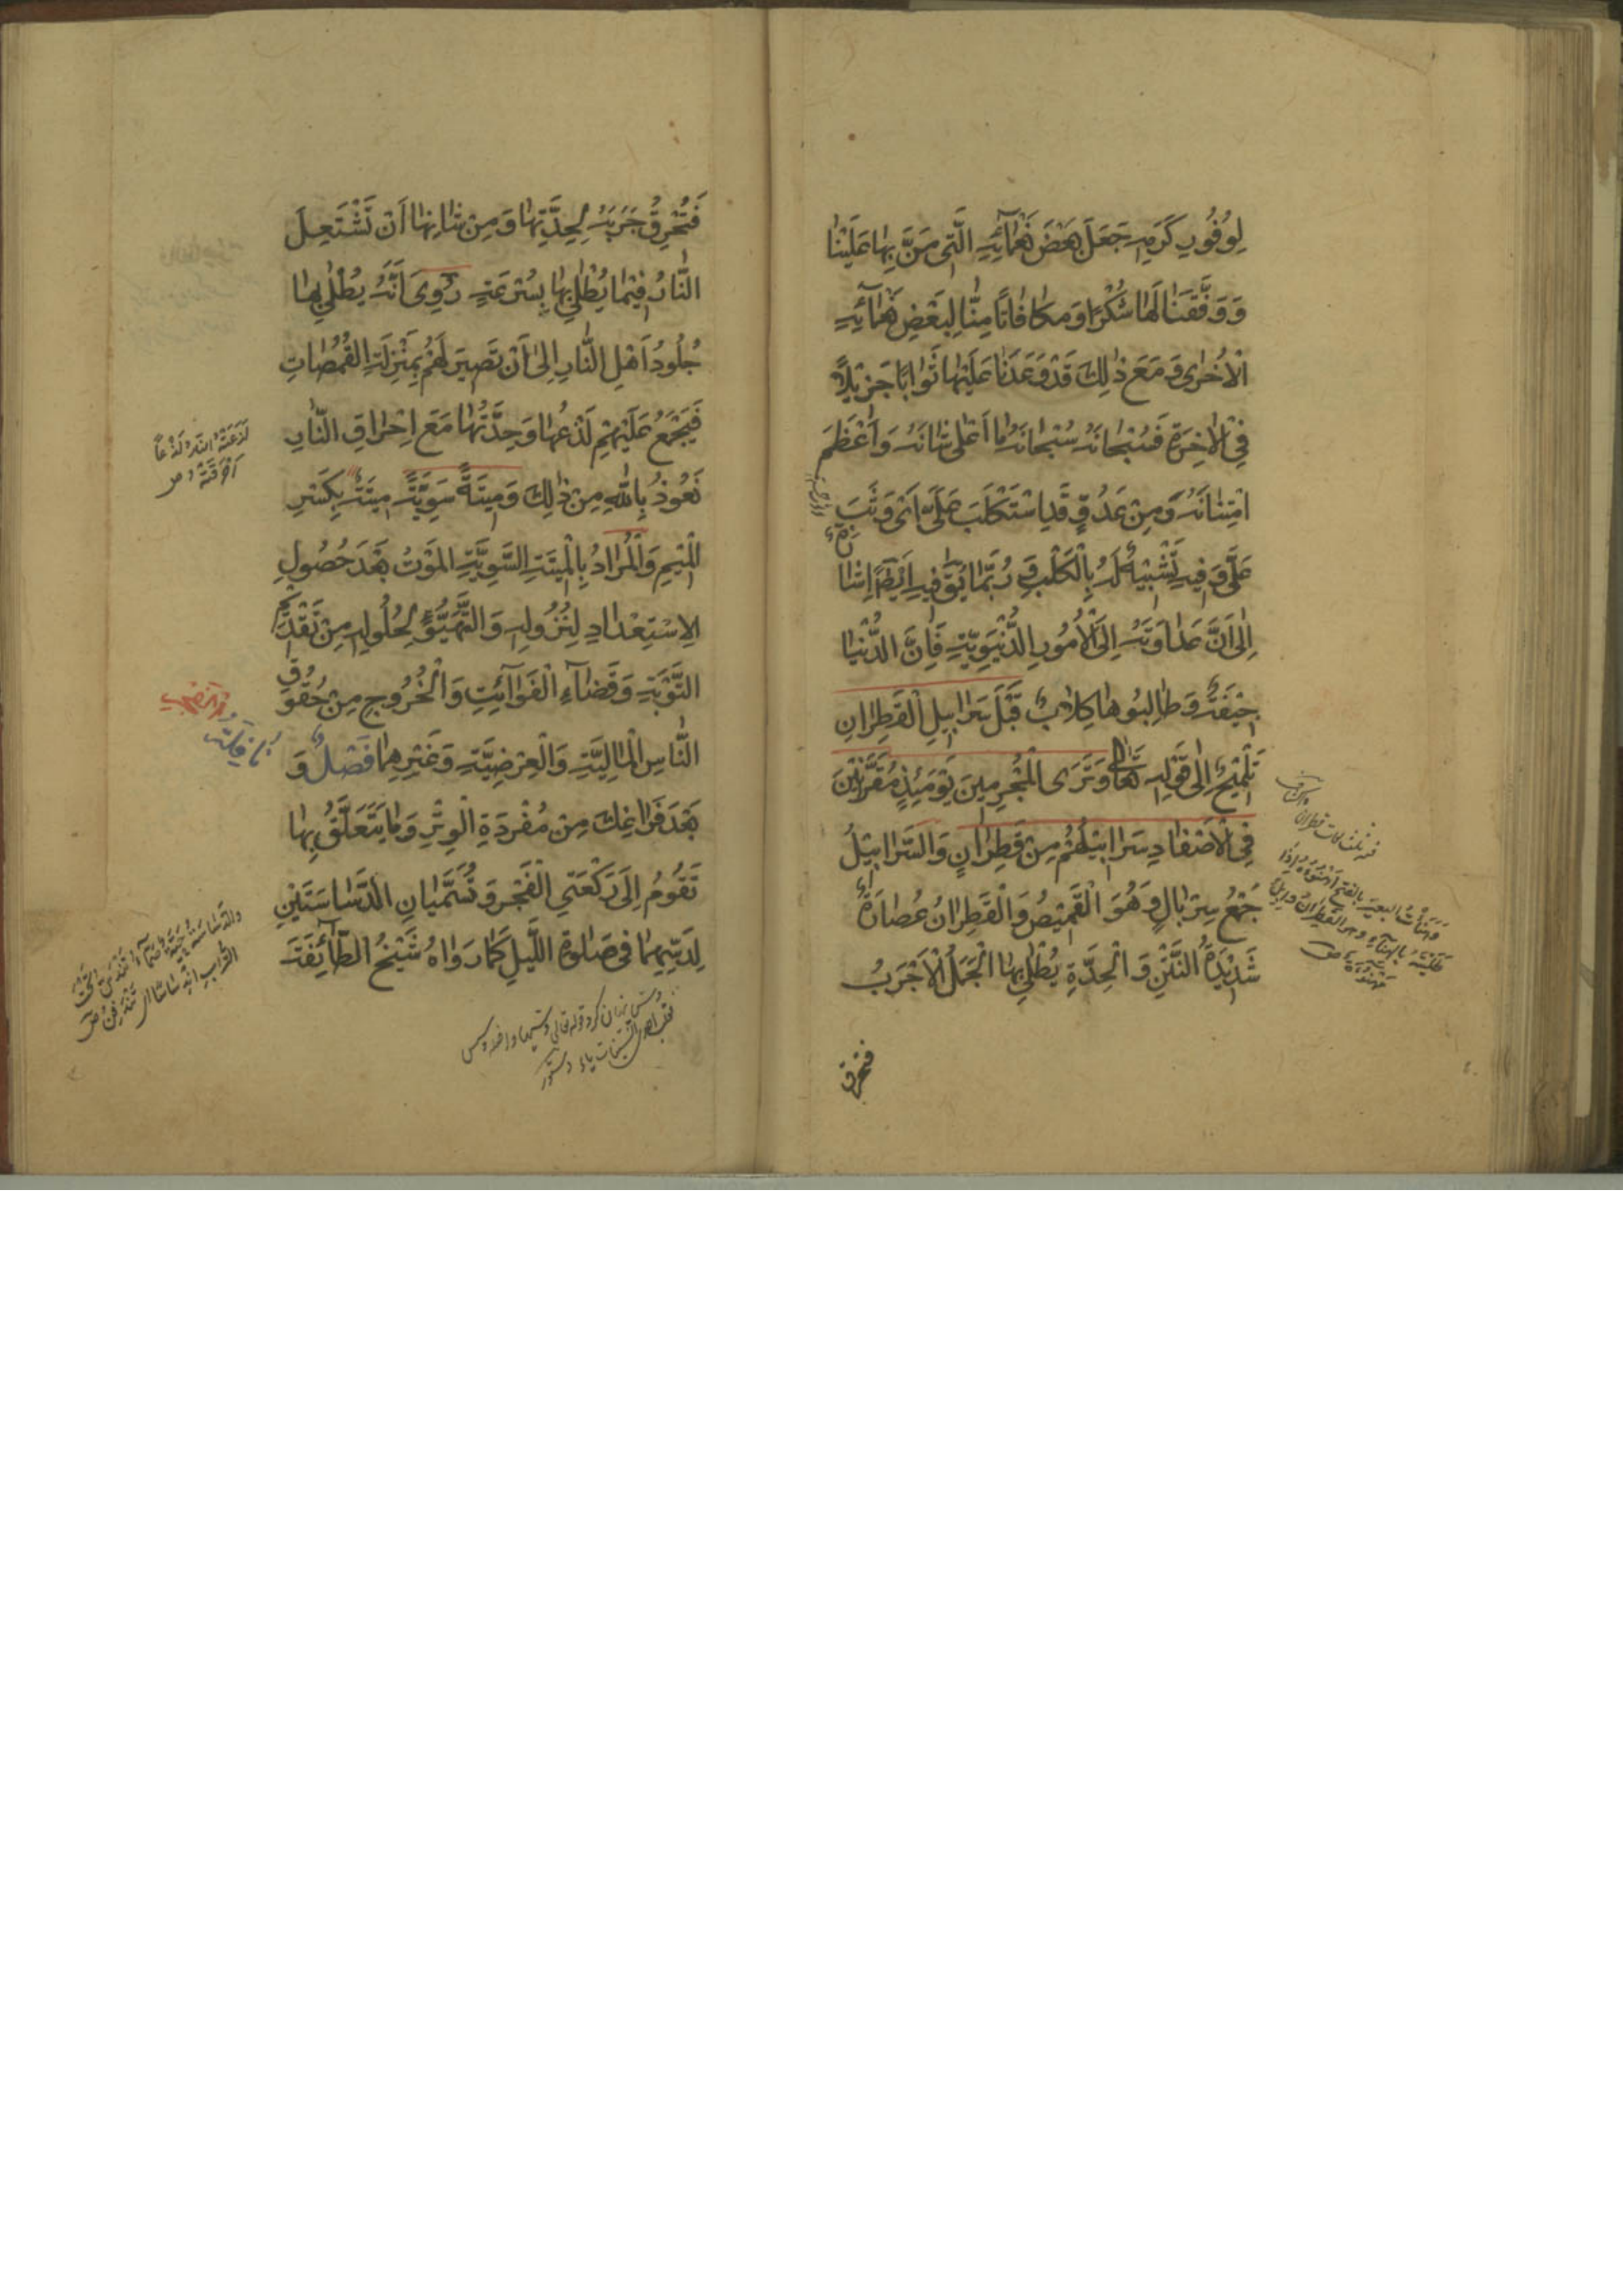 لِوُفُورِ كَرَمِهِ جَعَلَ بَعْضَ نَعْمَآئِهِ الَّتِى مَنَّ بِهَا عَلَيْنَا
وَ وَفَّقَنَا لَهَا شُكْرًا وَ مكَافَاتًا مِنَّا لِبَعْضِ نَعْمَآئِهِ
الْأُخْرٰى وَ مَعَ ذٰلِكَ قَدْ وَعَدَنَا عَلَيْهَا ثَوَابًا جَزِيْلًا
فِى الْاٰخِرَةِ فَسُبْحَانَهُ سُبْحَانَهُ مَا اَعْلٰى شَانَهُ وَ اَعْظَمَ
امْتِنَانَهُ وَ مِنْ عَدُوٍّ قَدِ اسْتَكْلَبَ عَلَىَّ اَىْ وَثَبَ
عَلَىَّ وَ فِيهِ تَشْبِيْهٌ لَهُ بِالْكَلْبِ وَ رُبَّمَا يُوَّ فِيهِ اَيْضًا اِشَا
اِلٰى اَنَّ عَدَاوَتَهُ اِلَى الْاُمُورِ الدُّنْيَوِيَّةِ فَاِنَّ الدُّنْيَا
جِيْفَةٌ وَ طَالِبُوهَا كِلَابٌ قَبْلَ سَرَابِيلِ الْقَطِرَانِ
تَلْمِيْحٌ اِلٰى قَوْلِهِ تَعَالٰى وَ تَرَى الْمُجْرِمِينَ يَوْمَئِذٍ مُقَرَّنِيْنَ
فِى الْاَصْفَادِ سَرَابِيْلُهُمْ مِنْ قَطِرَانٍ وَ السَّرَابِيْلُ
جَمْعُ سِرْبَالٍ وَ هُوَ الْقَمِيْصُ وَ الْقَطِرَانُ عُصَارَةٌ
شَدِيْدَةُ النَّتْنِ وَ الْحِدَّةِ يُطْلٰى بِهَا الْجَمَلُ الْاَجْرَبُ
فتحرق
فَتُحْرِقُ جَرَبَهُ لِحِدَّتِهَا وَ مِنْ شَانِهَا اَنْ تَشْتَعِلَ
النَّارُ فِيْمَا يُطْلٰى بِهَا بِسُرْعَةٍ رُوِىَ اَنَّهُ يُطْلٰى بِهَا
جُلُودُ اَهْلِ النَّارِ اِلٰى اَنْ تَصِيرَ لَهُمْ بِمَنْزِلَةِ الْقُمُصَاتِ
فَيَجْمَعُ عَلَيْهِمْ لَذْعُهَا وَ حِدَّتُهَا مَعَ اِحْرَاقِ النَّارِ
نَعُوذُ بِاللّٰهِ مِنْ ذٰلِكَ وَ مِيتَةً سَوِيَّةً مِيتَةٌ بِكَسْرِ
الْمِيمِ وَ الْمُرَادُ بِالْمِيتَةِ السَّوِيَّةِ الْمَوْتُ بَعْدَ حُصُولِ
الِاسْتِعْدَادِ لِنُزُولِهِ وَ التَّهَيُّؤِ لِحُلُولِهِ مِنْ تَقْدِيمِ
التَّوْبَةِ وَ قَضَآءِ الْفَوَآئِتِ وَ الْخُرُوجِ مِنْ حُقُوقِ
النَّاسِ الْمَالِيَّةِ وَ الْعِرْضِيَّةِ وَ غَيْرِهِمَا فَصْلٌ وَ
بَعْدَ فَرَاغِكَ مِنْ مُفْرَدَةِ الْوِتْرِ وَ مَا يَتَعَلَّقُ بِهَا
تَقُومُ اِلَى رَكْعَتَىِ الْفَجْرِ وَ تُسَمَّيَانِ الدَّسَّاسَتَيْنِ
لِدَسِّهِمَا فِى صَلٰوةِ اللَّيْلِ كَمَا رَوَاهُ شَيْخُ الطَّآئِفَةِ
لَذَعَتْهُ النَّارُ لَذْعًا
اَحْرَقَتْهُ ص
نافلة